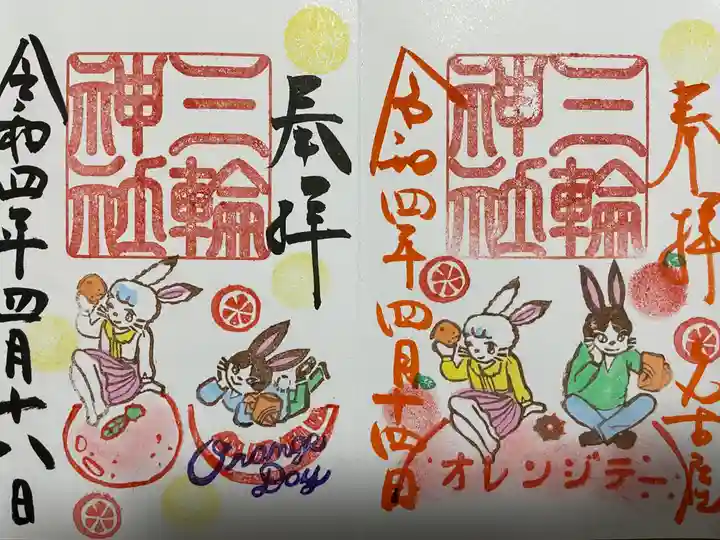 奉拝
三輪
神社
令和四年四月十八日
Orange
Day
奉拝
名古屋
三輪
神社
令和四年四月十四日
オレンジデー